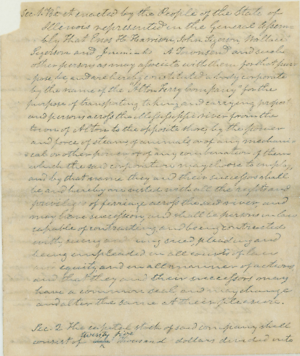 Sec. 1. Be it enacted by the People of the State of
Illinois represented in the General Assem-
bly, That John Wallace
and and such
other persons as may associate with them for that pur-
pose, be and are hereby constituted a body corporate
by the name of the "Alton Ferry Company" for the
purpose of transporting taking and carrying
and persons across the Mississippi river from the
town of Alton to the opposite shore, by the power
and force of steam, of animals or of any mechani-
cal or other power or of any combination of them
which the said corporation may choose to employ
and by that name they and their successors shall
be and hereby are invested with all the rights and
of ferriage across the said river and
may have succession, and shall be persons in law
capable of contracting and being contracted
with, suing and being sued, pleading and
being impleaded in all courts of law
equity and in all manner of actions
and they and their successors may
have a common seal and may change
and alter the same at their pleasure.
Sec. 2. The capital stock of said company shall
consist of twenty five thousand dollars divided into